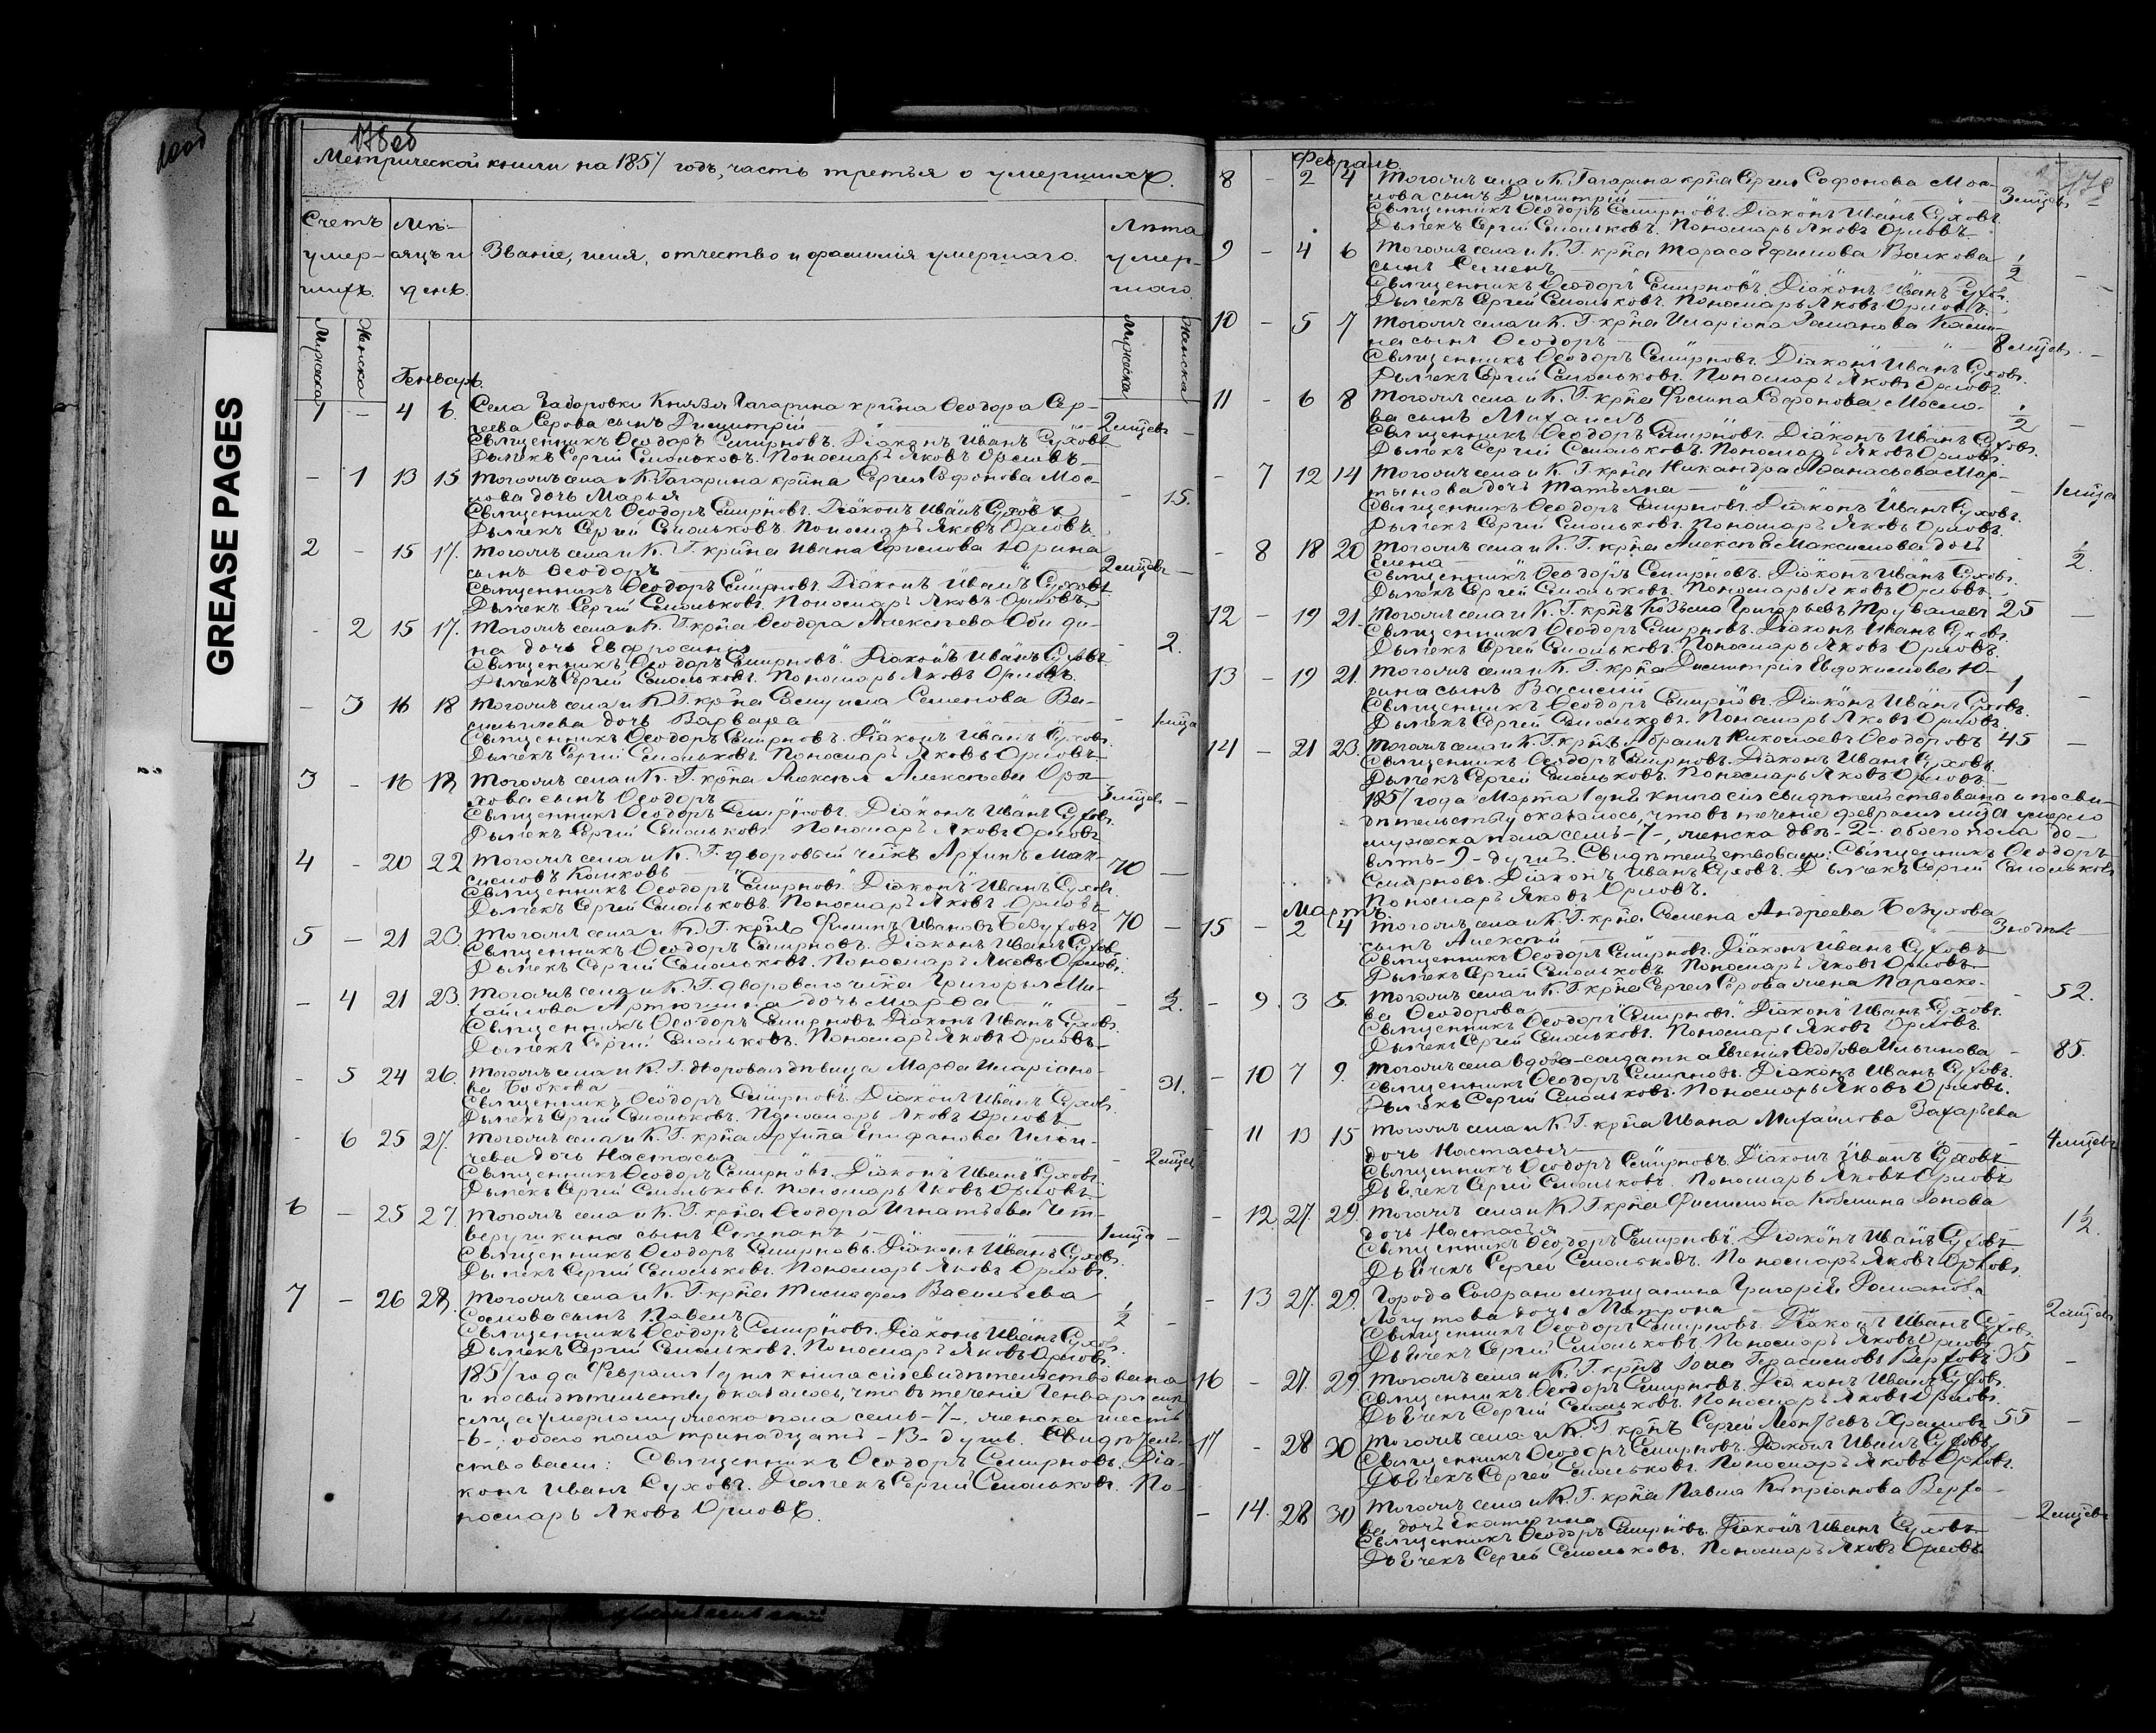 178об
Метрической книги на 1857 годъ, часть третья о умершихъ.
Счетъ умер-шихъ.
Мѣ-сяцъ и день.
Званіе, имя, отчество и фамилія умершаго.
Лѣта умер-шаго.
Мужеска
Женска
Мужеска
Женска
Генварь.
1 - 4 6 Села Заборовки Князя Гагарина кр̃нина Ѳеодора Сер-
геева Ерова сынъ Димитрій 2 мѣцевъ -
Священникъ Ѳеодоръ Смирновъ. Діаконъ Иванъ Суховъ
Дьячекъ Сергій Смольковъ. Пономарь Яковъ Орловъ
- 1 13 15 Тогожъ села и К. Гагарина кр̃нина Сергея Софонова Мос-
лова дочь Марья - 15.
Священникъ Ѳеодоръ Смирновъ. Діаконъ Иванъ Суховъ
Дьячекъ Сергій Смольковъ. Пономарь Яковъ Орловъ.
2 - 15 17. Тогожъ села и К. Г. кр̃нина Ивана Ефимова Юрина
сынъ Ѳеодоръ 2 мѣцевъ -
Священникъ Ѳеодоръ Смирновъ. Діаконъ Иванъ Суховъ
Дьячекъ Сергій Смольковъ. Пономарь Яковъ Орловъ.
- 2 15 17. Тогожъ села и К. Г. кр̃на Ѳеодора Алексѣева Оби ди-
на дочь Евфросинія - 2.
Священникъ Ѳеодоръ Смирновъ. Діаконъ Иванъ Суховъ
Дьячекъ Сергій Смольковъ. Пономарь Яковъ Орловъ.
- 3 16 18 Тогожъ села и К. Г. кр̃на Самуила Семенова Ва-
сильева дочь Варвара - 1 мѣца
Священникъ Ѳеодоръ Смирновъ. Діаконъ Иванъ Суховъ.
Дьячекъ Сергій Смольковъ. Пономарь Яковъ Орловъ
3 - 16 18 Тогожъ села и К. Г. кр̃на Алексѣя Алексѣева Орѣ-
хова сынъ Ѳеодоръ 3 мѣцевъ -
Священникъ Ѳеодоръ Смирновъ. Діаконъ Иванъ Суховъ.
Дьячекъ Сергій Смольковъ. Пономарь Яковъ Орловъ
4 - 20 22 Тогожъ села и К. Г. дворовый чл̃къ Архипъ Мак-
симовъ Волковъ 70 -
Священникъ Ѳеодоръ Смирновъ. Діаконъ Иванъ Суховъ.
Дьячекъ Сергій Смольковъ. Пономарь Яковъ Орловъ
5 - 21 23. Тогожъ села и К. Г. кр̃нъ Филипъ Ивановъ Безуховъ 70 -
Священникъ Ѳеодоръ Смирновъ. Діаконъ Иванъ Суховъ.
Дьячекъ Сергій Смольковъ. Пономарь Яковъ Орловъ.
- 4 21 23. Тогожъ села и К. Г. двороваго чл̃ка Григорья Ми-
хайлова Артюшина дочь Марѳа - ½.
Священникъ Ѳеодоръ Смирновъ. Діаконъ Иванъ Суховъ.
Дьячекъ Сергій Смольковъ. Пономарь Яковъ Орловъ
- 5 24 26. Тогожъ села и К. Г. дворовая дѣвица Марѳа Иларіоно-
ва Бобкова - 31.
Священникъ Ѳеодоръ Смирновъ. Діаконъ Иванъ Суховъ.
Дьячекъ Сергій Смольковъ. Пономарь Яковъ Орловъ.
- 6 25 27. Тогожъ села и К. Г. кр̃на Архипа Епифанова Ильи-
чева дочь Настасья - 2 мѣцевъ
Священникъ Ѳеодоръ Смирновъ. Діаконъ Иванъ Суховъ.
Дьячекъ Сергій Смольковъ. Пономарь Яковъ Орловъ
6 - 25 27. Тогожъ села и К. Г. кр̃на Ѳеодора Игнатьева Чет-
веруш кина сынъ Степанъ 1 мѣца -
Священникъ Ѳеодоръ Смирновъ. Діаконъ Иванъ Суховъ.
Дьячекъ Сергій Смольковъ. Пономарь Яковъ Орловъ.
7 - 26 28. Тогожъ села и К. Г. кр̃на Тимофея Васильева
Сомова сынъ Павелъ ½ -
Священникъ Ѳеодоръ Смирновъ. Діаконъ Иванъ Суховъ.
Дьячекъ Сергій Смольковъ. Пономарь Яковъ Орловъ.
1857 года Февраля 1 дня книга сія свидѣтельствована
и по свидѣтельству оказалось, что въ теченіе Генваря мѣ-
сяца умерло мужеска пола семь -7-, женска шесть
-6-, обоего пола тринадцать -13- душъ. Свидѣтель-
ствовали: Священникъ Ѳеодоръ Смирновъ. Діа-
конъ Иванъ Суховъ. Дьячекъ Сергій Смольковъ. По-
номарь Яковъ Орловъ.
178
Февраль
8 - 2 4 Тогожъ села и К. Гагарина кр̃на Сергея Софонова Мос-
лова сынъ Димитрій 3 мѣцевъ
Священникъ Ѳеодоръ Смирновъ. Діаконъ Иванъ Суховъ.
Дьячекъ Сергій Смольковъ. Пономарь Яковъ Орловъ
9 - 4 6 Тогожъ села и К. Г. кр̃на Тараса Ефимова Волкова
сынъ Семенъ ½ -
Священникъ Ѳеодоръ Смирновъ. Діаконъ Иванъ Суховъ.
Дьячекъ Сергій Смольковъ. Пономарь Яковъ Орловъ.
10 - 5 7 Тогожъ села и К. Г. кр̃на Иларіона Романова Калин-
на сынъ Ѳеодоръ 8 мѣцев. -
Священникъ Ѳеодоръ Смирновъ. Діаконъ Иванъ Суховъ.
Дьячекъ Сергій Смольковъ. Пономарь Яковъ Орловъ.
11 - 6 8 Тогожъ села и К. Г. кр̃на Филипа Софонова Мосло-
ва сынъ Михаилъ ½ -
Священникъ Ѳеодоръ Смирновъ. Діаконъ Иванъ Суховъ.
Дьячекъ Сергій Смольковъ. Пономарь Яковъ Орловъ
- 7 12 14 Тогожъ села и К. Г. кр̃на Никандра Аѳанасьева Мар-
тынова дочь Татьяна - 1 мѣца
Священникъ Ѳеодоръ Смирновъ. Діаконъ Иванъ Суховъ.
Дьячекъ Сергій Смольковъ. Пономарь Яковъ Орловъ.
- 8 18 20 Тогожъ села и К. Г. кр̃на Алексѣя Максимова дочь
Елена - ½.
Священникъ Ѳеодоръ Смирновъ. Діаконъ Иванъ Суховъ.
Дьячекъ Сергій Смольковъ. Пономарь Яковъ Орловъ.
12 - 19 21. Тогожъ села и К. Г. кр̃нъ Козьма Григорьевъ Трувалевъ 25 -
Священникъ Ѳеодоръ Смирновъ. Діаконъ Иванъ Суховъ.
Дьячекъ Сергій Смольковъ. Пономарь Яковъ Орловъ.
13 - 19 21. Тогожъ села и К. Г. кр̃на Димитрія Евдокимова Ю-
рина сынъ Василій 1 -
Священникъ Ѳеодоръ Смирновъ. Діаконъ Иванъ Суховъ.
Дьячекъ Сергій Смольковъ. Пономарь Яковъ Орловъ.
14 - 21 23. Тогожъ села и К. Г. кр̃нъ Абрамъ Николаевъ Ѳеодоровъ 45 -
Священникъ Ѳеодоръ Смирновъ. Діаконъ Иванъ Суховъ.
Дьячекъ Сергій Смольковъ. Пономарь Яковъ Орловъ
1857 года Марта 1 дня книга сія свидѣтельствована и по сви-
дѣтельству оказалось, что въ теченіе февраля мѣца умерло
мужеска пола семь -7-, женска двѣ -2-. обоего пола де-
вять -9- душъ. Свидѣтельствовали: Священникъ Ѳеодоръ
Смирновъ. Діаконъ Иванъ Суховъ. Дьячекъ Сергій Смольковъ
Пономарь Яковъ Орловъ.
Мартъ.
15 - 2 4 Тогожъ села и К. Г. кр̃на Семена Андреева Безухова
сынъ Алексѣй 3 недѣл
Священникъ Ѳеодоръ Смирновъ. Діаконъ Иванъ Суховъ
Дьячекъ Сергій Смольковъ. Пономарь Яковъ Орловъ
- 9. 3 5. Тогожъ села и К. Г. кр̃на Сергея Ерова жена Параске-
ва Ѳеодорова - 52.
Священникъ Ѳеодоръ Смирновъ. Діаконъ Иванъ Суховъ.
Дьячекъ Сергій Смольковъ. Пономарь Яковъ Орловъ.
- 10 7 9. Тогожъ села вдова-солдатка Евгенія Ѳедорова Ильинова - 85.
Священникъ Ѳеодоръ Смирновъ. Діаконъ Иванъ Суховъ.
Дьячекъ Сергій Смольковъ. Пономарь Яковъ Орловъ.
- 11 13 15 Тогожъ села и К. Г. кр̃на Ивана Михайлова Захарьева
дочь Настасья - 4 мѣцевъ
Священникъ Ѳеодоръ Смирновъ. Діаконъ Иванъ Суховъ
Дьячекъ Сергій Смольковъ. Пономарь Яковъ Орловъ
- 12 27. 29. Тогожъ села и К. Г. кр̃на Филимона Козмина Панова
дочь Настасья 1½.
Священникъ Ѳеодоръ Смирновъ. Діаконъ Иванъ Суховъ
Дьячекъ Сергей Смольковъ. Пономарь Яковъ Орловъ.
- 13 27. 29. Города Сызрани мѣщанина Григорія Романова
Логутова дочь Матрона 2 мѣцевъ.
Священникъ Ѳеодоръ Смирновъ. Діаконъ Иванъ Суховъ.
Дьячекъ Сергій Смольковъ. Пономарь Яковъ Орловъ
16 - 27. 29 Тогожъ села и К. Г. кр̃нъ Іона Герасимовъ Верховъ 35 -
Священникъ Ѳеодоръ Смирновъ. Діаконъ Иванъ Суховъ.
Дьячекъ Сергій Смольковъ. Пономарь Яковъ Орловъ.
17 - 28 30 Тогожъ села и К. Г. кр̃нъ Сергій Леонтьевъ Храмовъ 55 -
Священникъ Ѳеодоръ Смирновъ. Діаконъ Иванъ Суховъ
Дьячекъ Сергей Смольковъ. Пономарь Яковъ Орловъ.
- 14. 28 30 Тогожъ села и К. Г. кр̃на Павла Кипріанова Верхо-
ва дочь Екатерина - 2 мѣцевъ
Священникъ Ѳеодоръ Смирновъ. Діаконъ Иванъ Суховъ
Дьячекъ Сергій Смольковъ. Пономарь Яковъ Орловъ.
GREASE PAGES